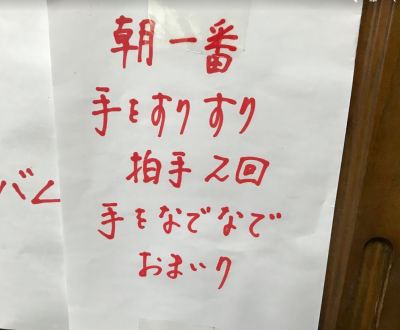 朝一番
手をすりすり
拍手2回
手をなでなで
おまいり
バム